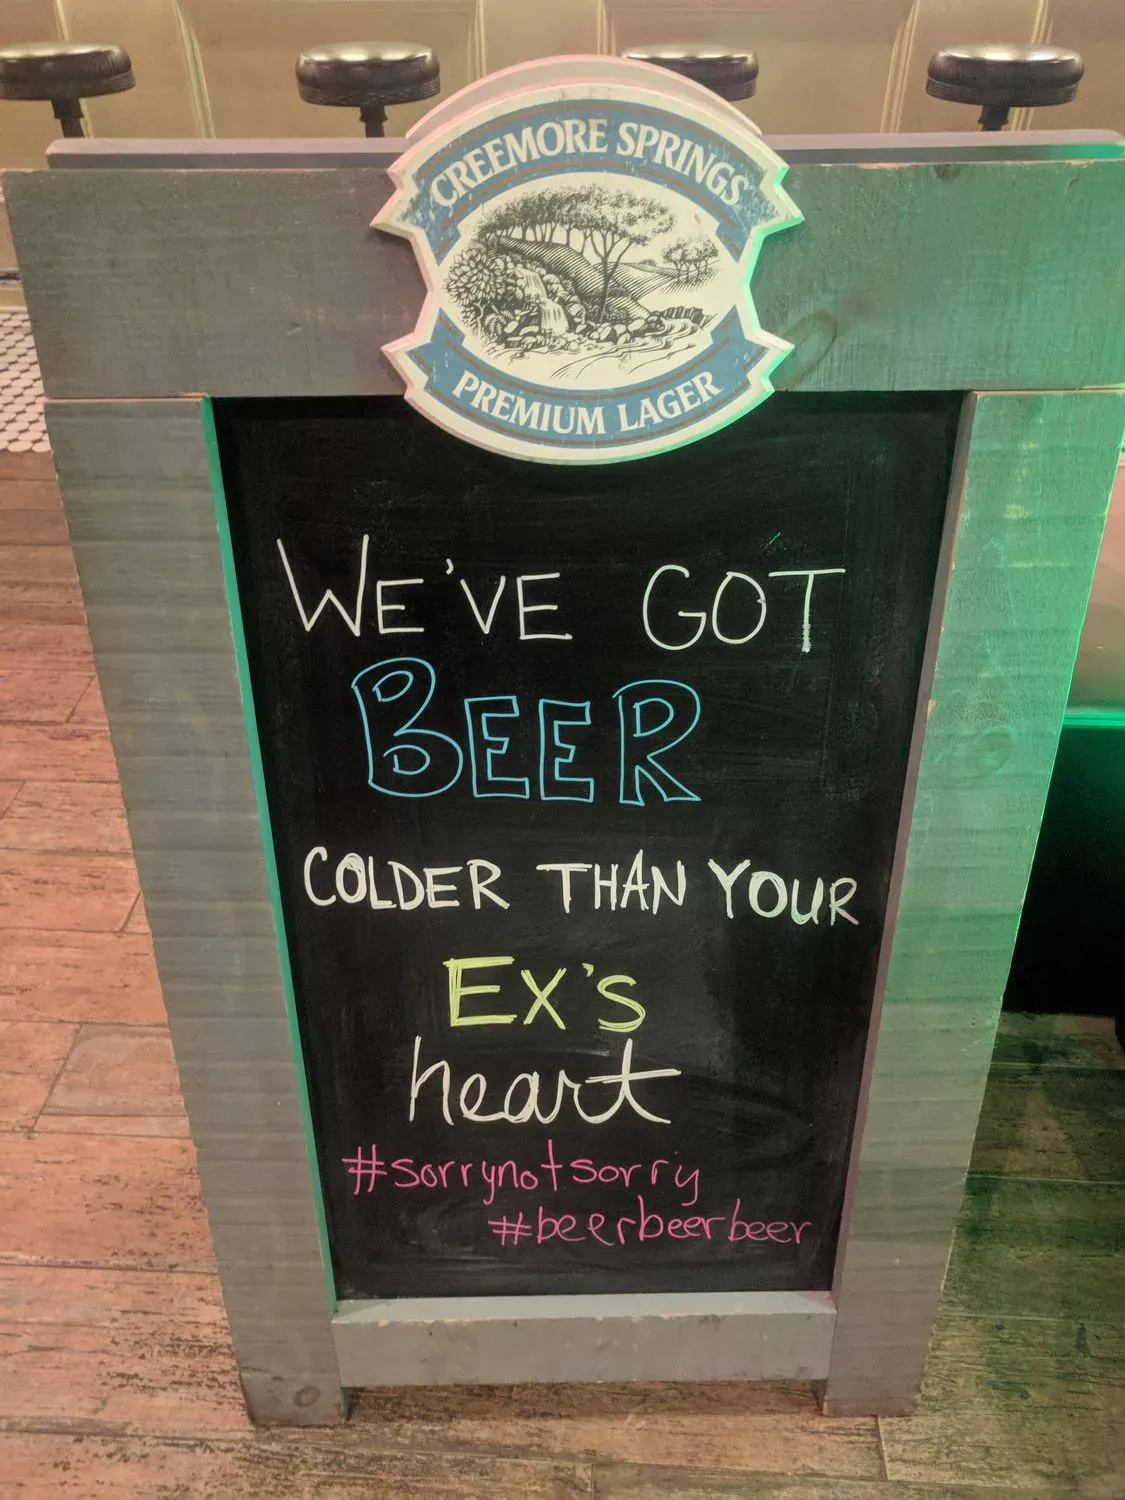 CREEMORE SPRINGS
PREMIUM LAGER
WE'VE GOT
BEER
COLDER THAN YOUR
EX'S
heart
#sorrynotsorry
#beerbeerbeer